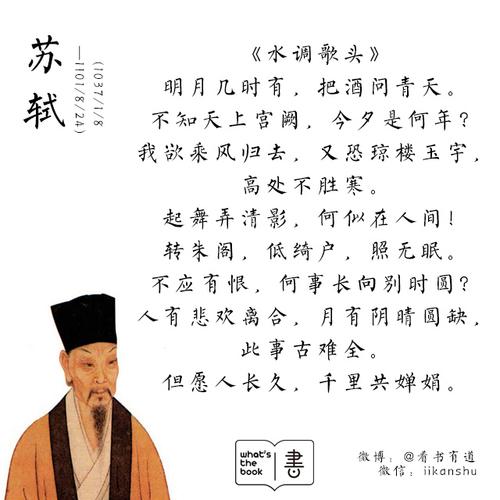 苏轼
(1037/1/8
—1101/8/24)
《水调歌头》
明月几时有，把酒问青天。
不知天上宫阙，今夕是何年？
我欲乘风归去，又恐琼楼玉宇，
高处不胜寒。
起舞弄清影，何似在人间！
转朱阁，低绮户，照无眠。
不应有恨，何事长向别时圆？
人有悲欢离合，月有阴晴圆缺，
此事古难全。
但愿人长久，千里共婵娟。
what's
the
book
書
微博：@看书有道
微信：iikanshu